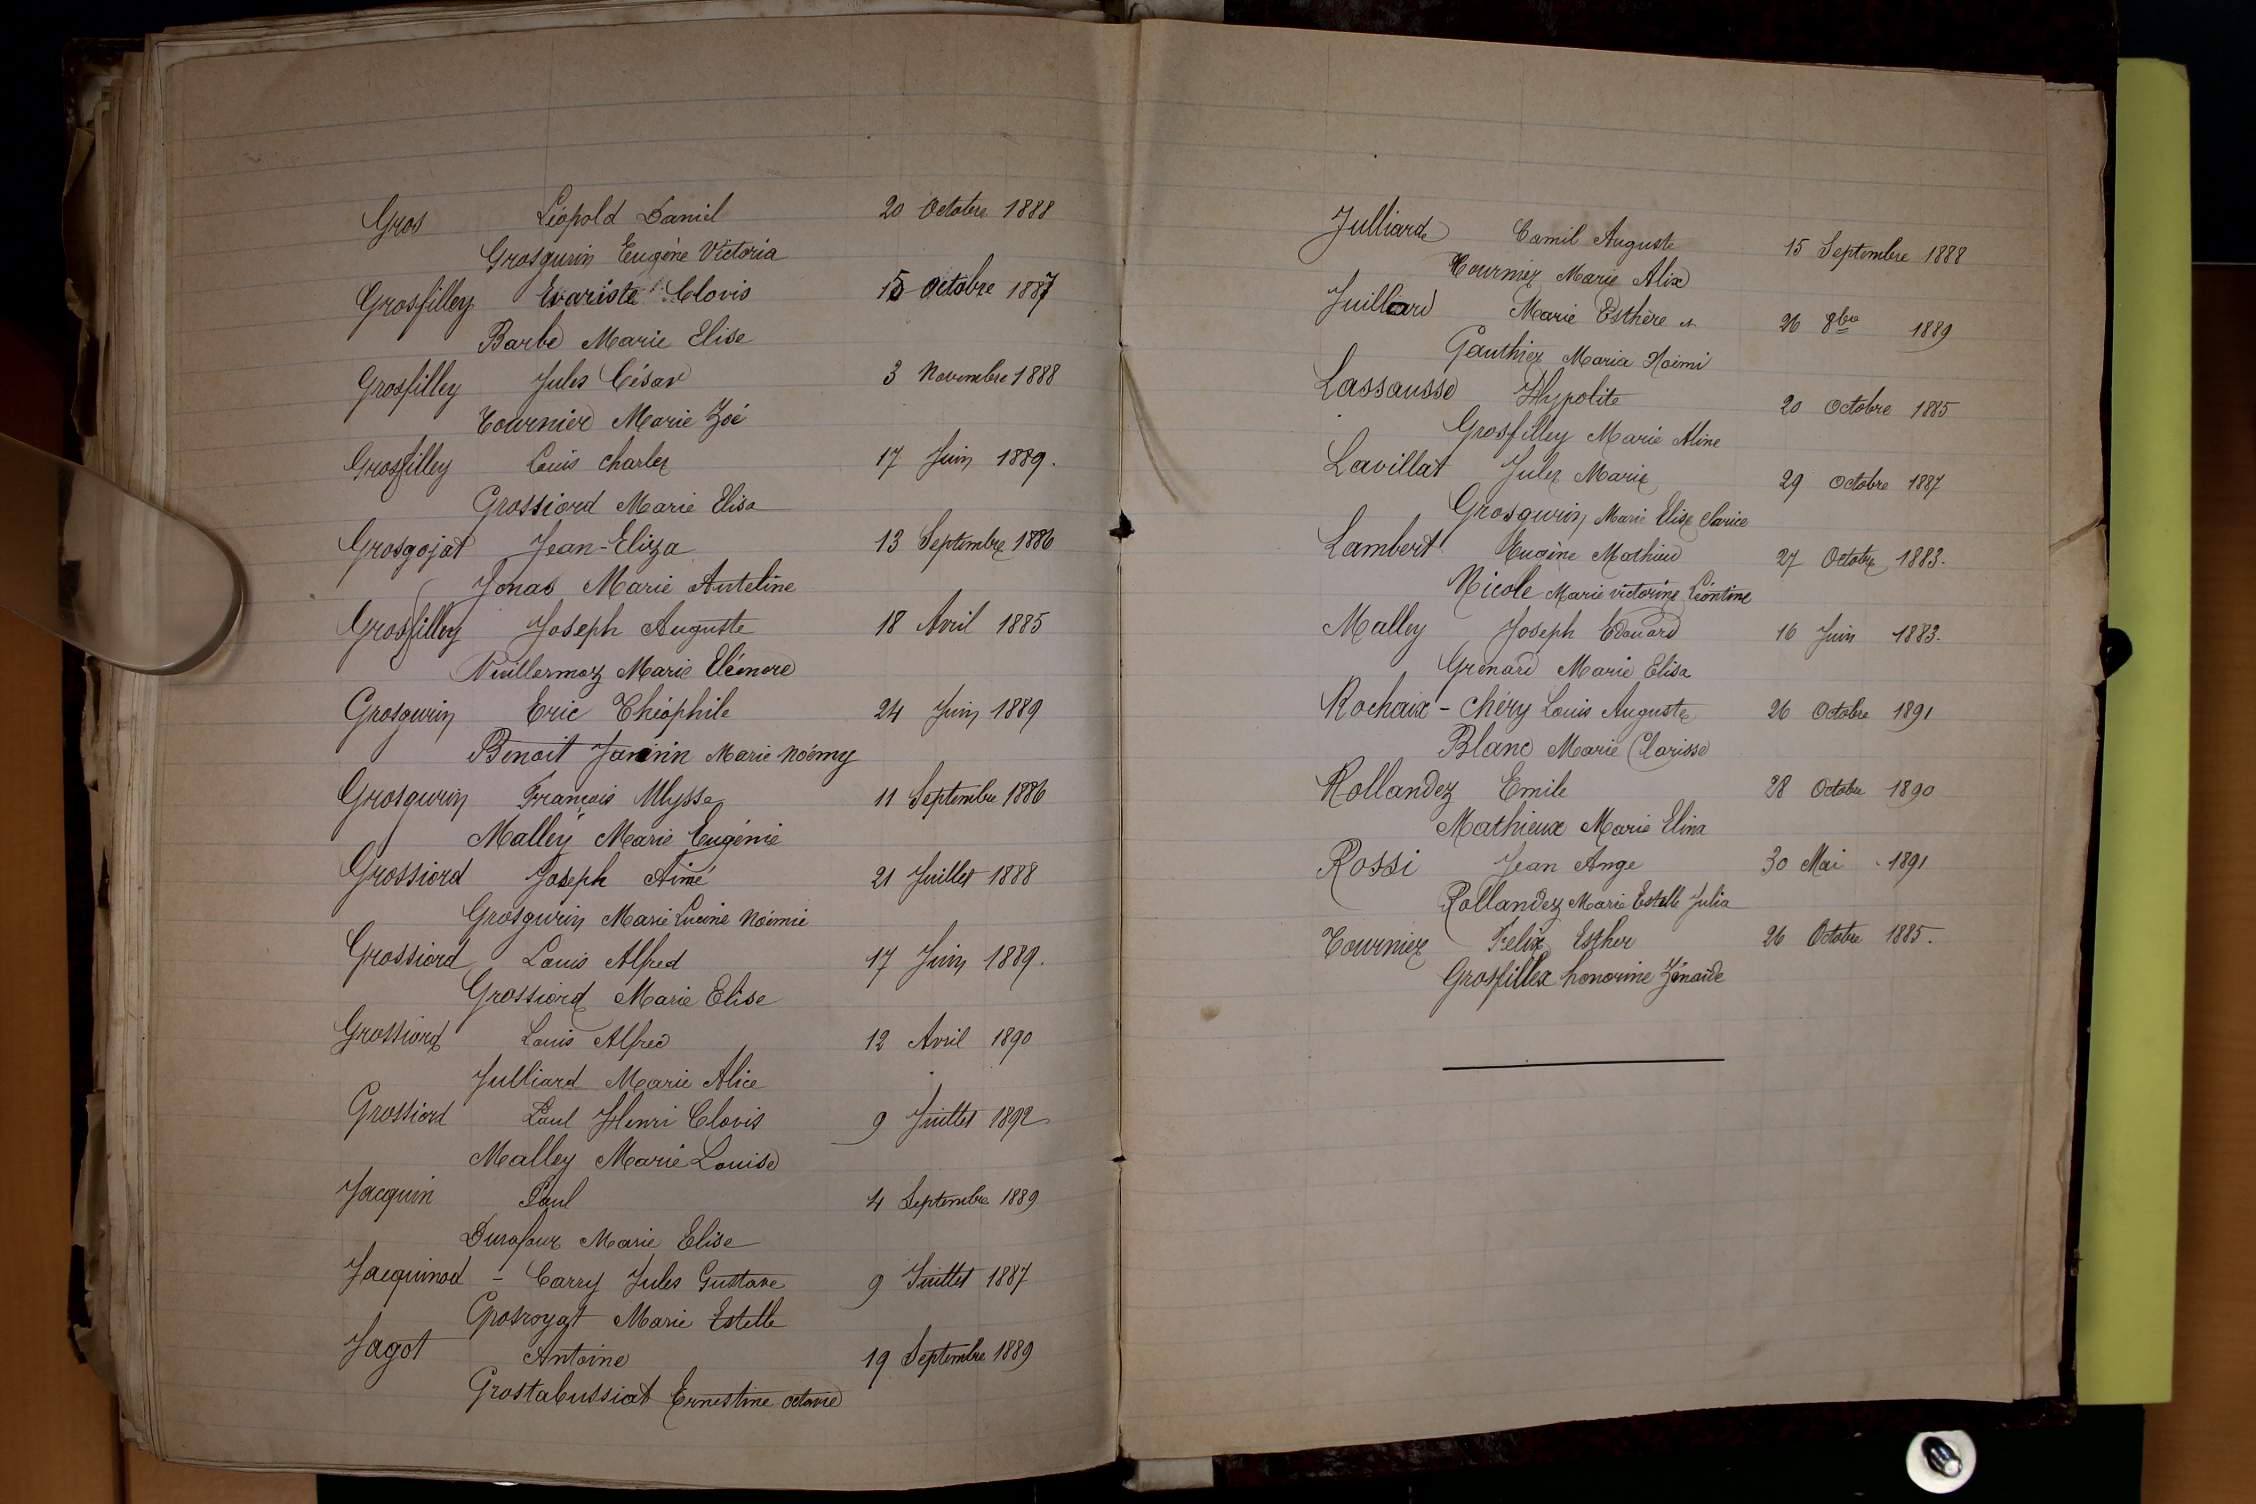 Gros Léopold Daniel 20 Octobre 1888
Grosgurin Eugène Victoria
Grosfilley Evariste Clovis 15 octobre 1887
Barbe Marie Elise
Grosfilley Jules César 3 Novembre 1888
Tournier Marie Zoé
Grosfilley Louis Charles 17 Juin 1889.
Grossiord Marie Elisa
Grosgojat Jean-Eliza 13 Septembre 1886
Jonas Marie Anteline
Grosfilley Joseph Auguste 18 Avril 1885
Vuillermoz Marie Eléonore
Grosgurin Eric Théophile 24 Juin 1889
Benoit Janin Marie Noémy
Grosgurin François Ulysse 11 Septembre 1886
Malley Marie Eugénie
Grossiord Joseph Aimé 21 Juillet 1888
Grosgurin Marie Lucine Noémie
Grossiord Louis Alfred 17 Juin 1889.
Grossiord Marie Elise
Grossiord Louis Alfred 12 Avril 1890
Julliard Marie Alice
Grossiord Paul Henri Clovis 9 Juillet 1892
Malley Marie Louise
Jacquin Paul 4 Septembre 1889
Durafour Marie Elise
Jacquinod - Carry Jules Gustave 9 Juillet 1887
Grosroyat Marie Estelle
Jagot Antoine 19 Septembre 1889
Grostabussiat Ernestine octavie
Julliard Camil Auguste 15 Septembre 1888
Tournier Marie Alix
Juilliard Marie Esthère 26 8bre 1889
Gauthier Maria Noémi
Lassausse Hypolite 20 Octobre 1885
Grosfilley Marie Aline
Lavillat Jules Marie 29 Octobre 1887
Grosgurin Marie Elise Clarice
Lambert Eugène Mathieu 27 Octobre 1883.
Nicole Marie victorine Léontine
Malley Joseph Edouard 16 Juin 1883.
Grenard Marie Elisa
Rochaix - Chéry Louis Auguste 26 Octobre 1891
Blanc Marie Clarisse
Rollandez Emile 28 Octobre 1890
Mathieux Marie Elina
Rossi Jean Ange 30 Mai 1891
Rollandez Marie Estelle Julia
Tournier Felix Esther 26 Octobre 1885.
Grosfillex honorine Zénaïde